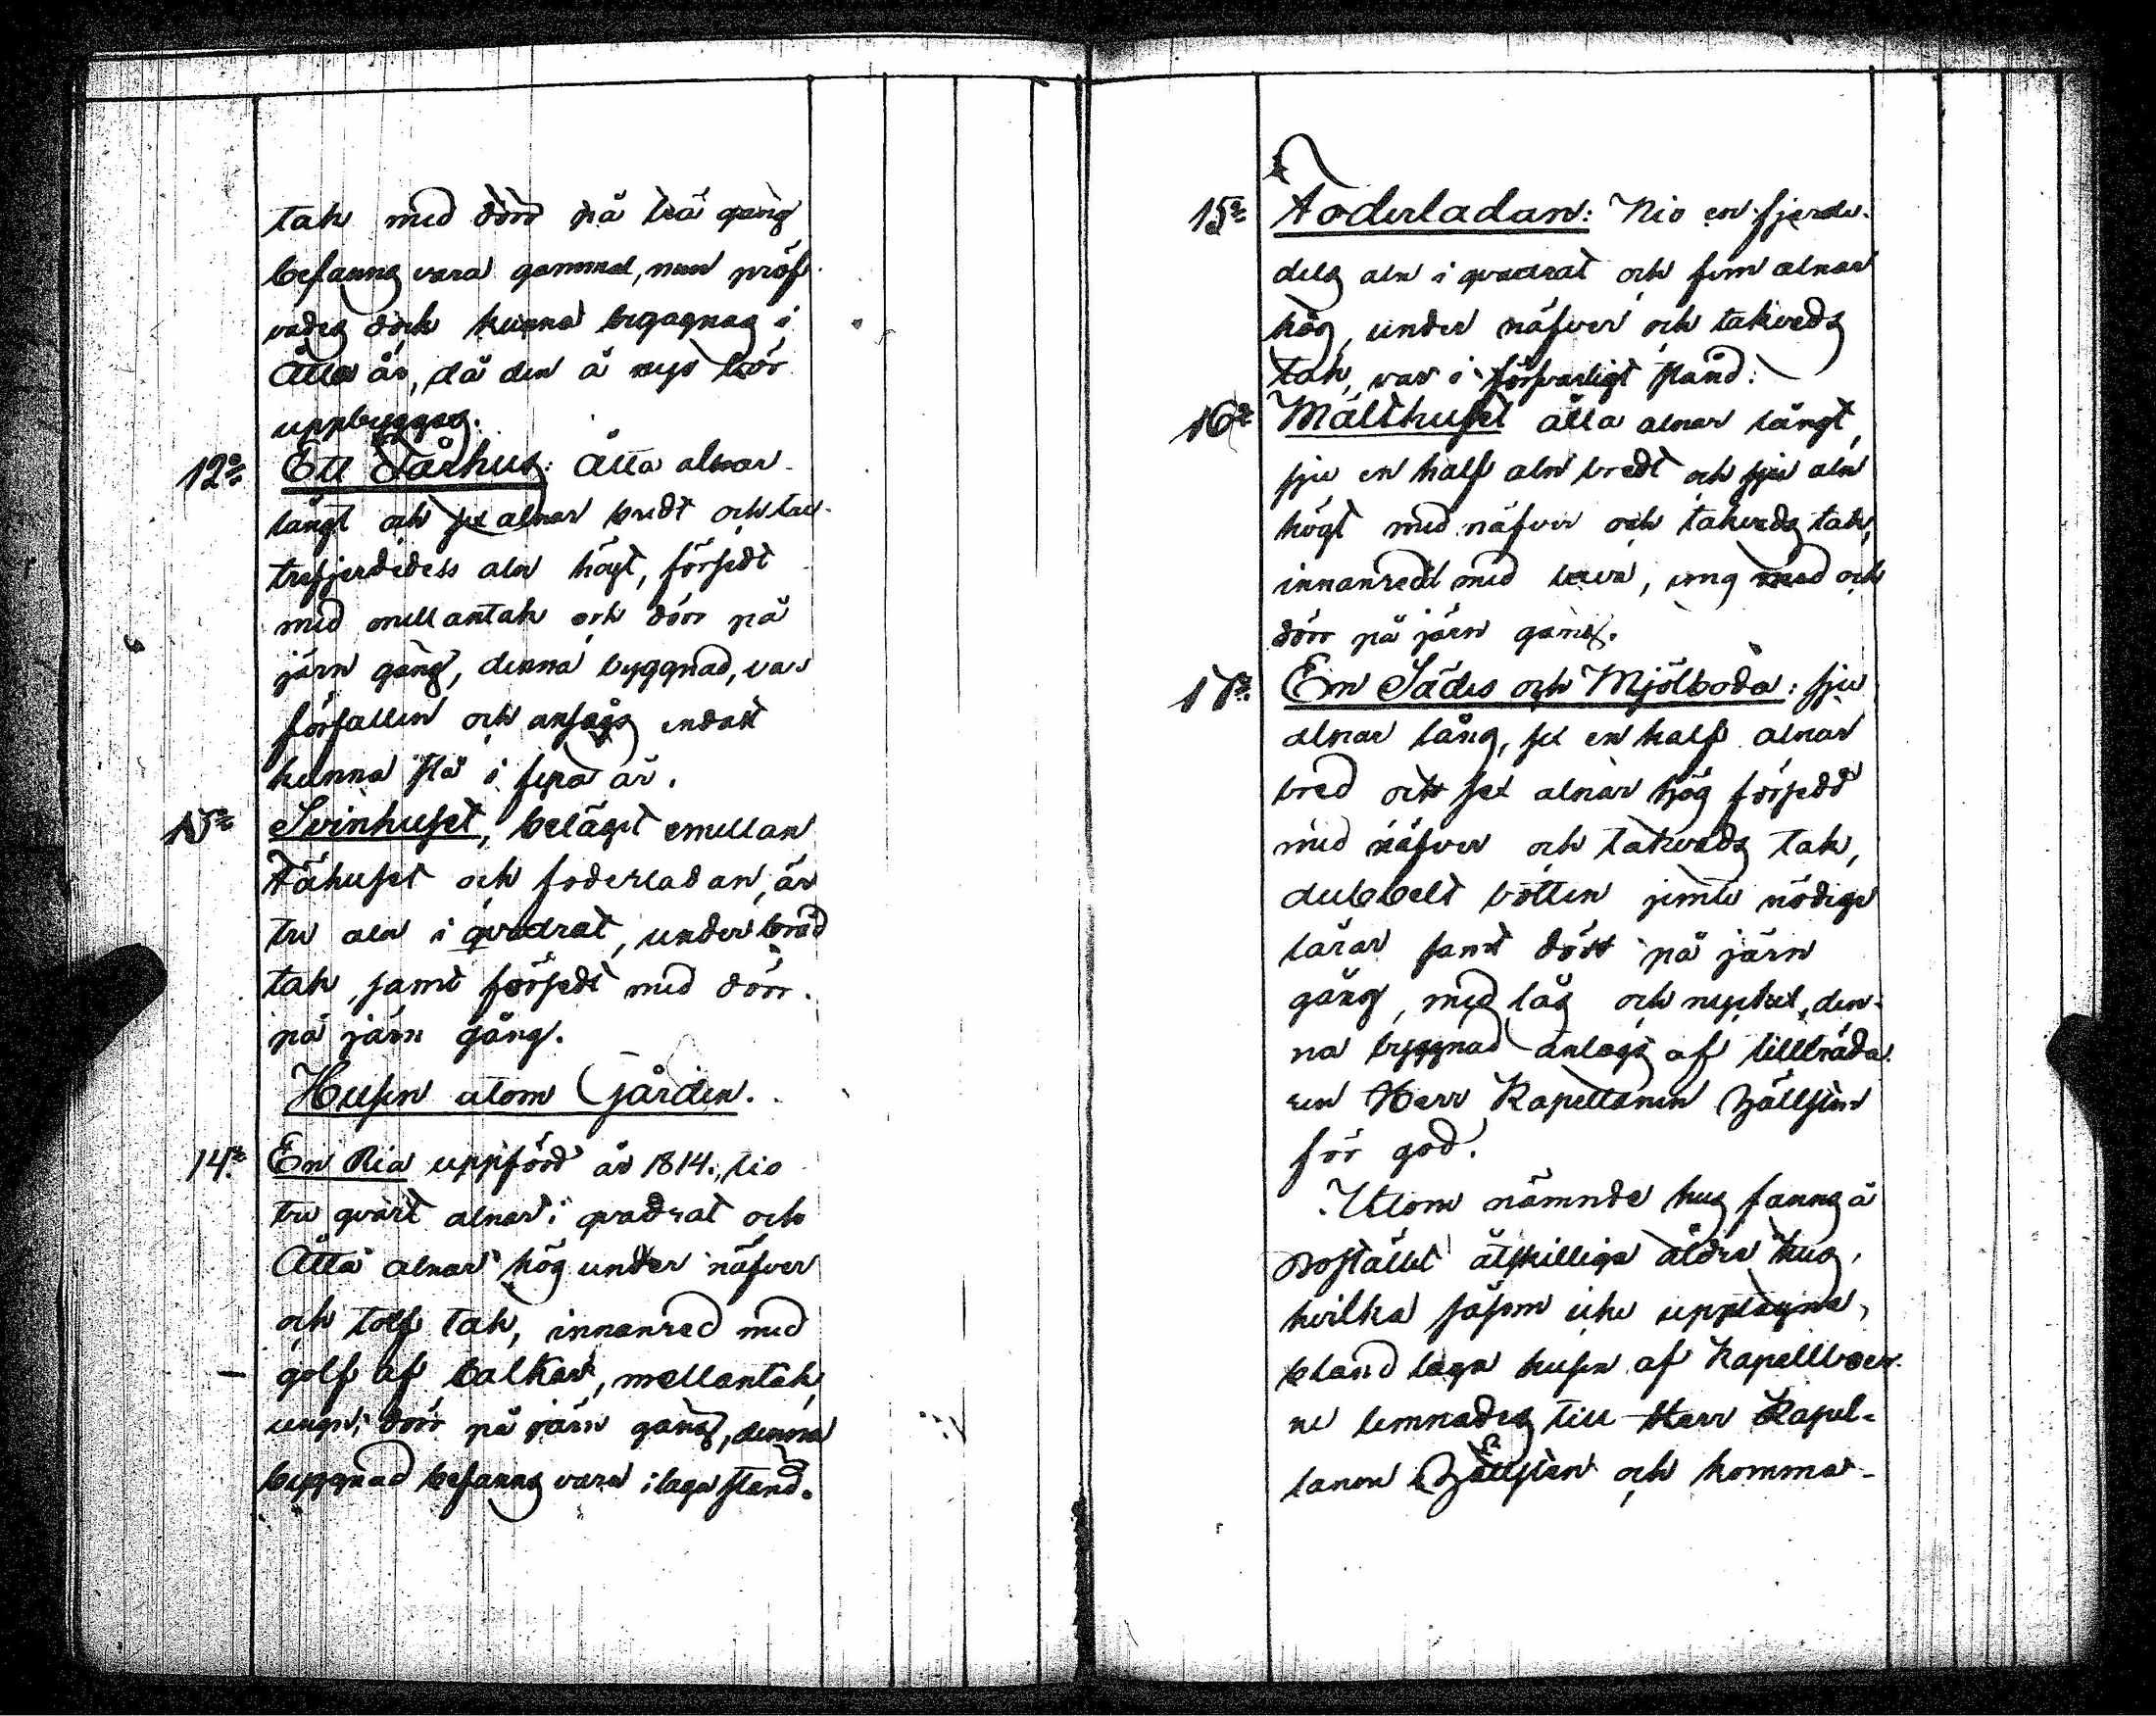 tak med dörr på trä gång
befanns vara gammal, men pröf-
vades dock kunna begagnas i
Åtta år, då den å nyo bör
uppbyggas.
12o Ett Fårhus: Åtta alnar
långt och sex alnar bredt och tre-
trefjerdedels aln högt, försedt
med mellantak och dörr på
järn gång, denna byggnad, var
förfallen och ansågs endast
kunna stå i sexa år.
13o Svinhuset, beläget emellan
Fähuset och foderladan, är
tre aln i qvadrat, under bräd
tak, samt försedt med dörr
på järn gång.
Husen utom Gården.
14o En Ria uppförd år 1814, tio
tre qvart alnar i qvadrat och
Åtta alnar hög under näfver
och tolf tak, innanred med
golf af balkar, mellantak,
ungn, dörr på järn gång, denna
byggnad befanns vara i laga stånd.
15o Foderladan: Nio en fjerde-
dels aln i qvadrat och fem alnar
hög, under näfver och takveds
tak, var i försvarligt stånd.
16o Mälthuset åtta alnar långt,
sju en half aln bredt och sju aln
högt med näfver och takveds tak,
innanredd med lave, ung och
dörr på järn gång.
17o En Sädes och Mjölboda: sju
alnar lång, sex en half alnar
bred och sex alnar hög försedd
med näfver och takveds tak,
dubbelt botten jemte nödige
lårar samt dörr på järn
gång, med lås och nyckel, den-
na byggnad anlogs af tillträda-
ren Herr Kapellanen Zällsten
för god.
Utom nämnde hus fanns å
Bostället åtskilliga äldre hus,
hvilka såsom icke upptagne,
bland laga husen af Kapellboer-
ne lemnades till Herr Kapel-
lanen Zällsten och komma-